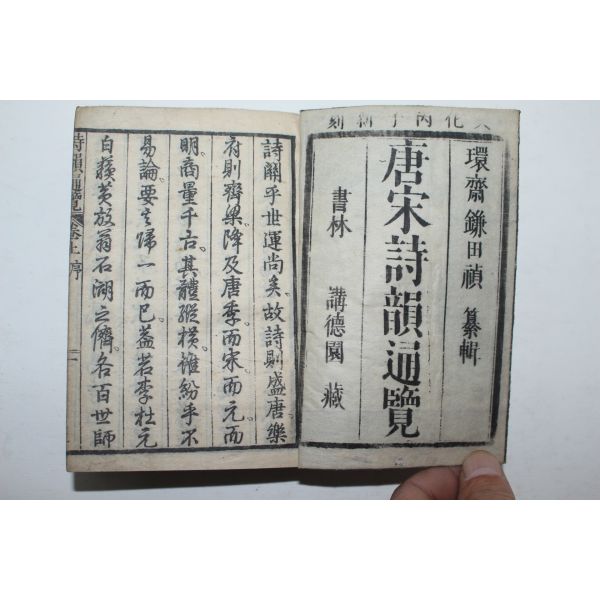 文化丙子新刻
環齋鎌田禎 纂輯
唐宋詩韻通覽
書林 講德園 藏
詩關乎世運尚矣故詩則盛唐樂
府則齊梁降及唐季而宋而元而
明商量千古其體縱橫雖紛乎不
易論要之歸一而已蓋若李杜元
白蘇黃放翁石湖之儕各百世師
詩韻通覽 卷上 序 一